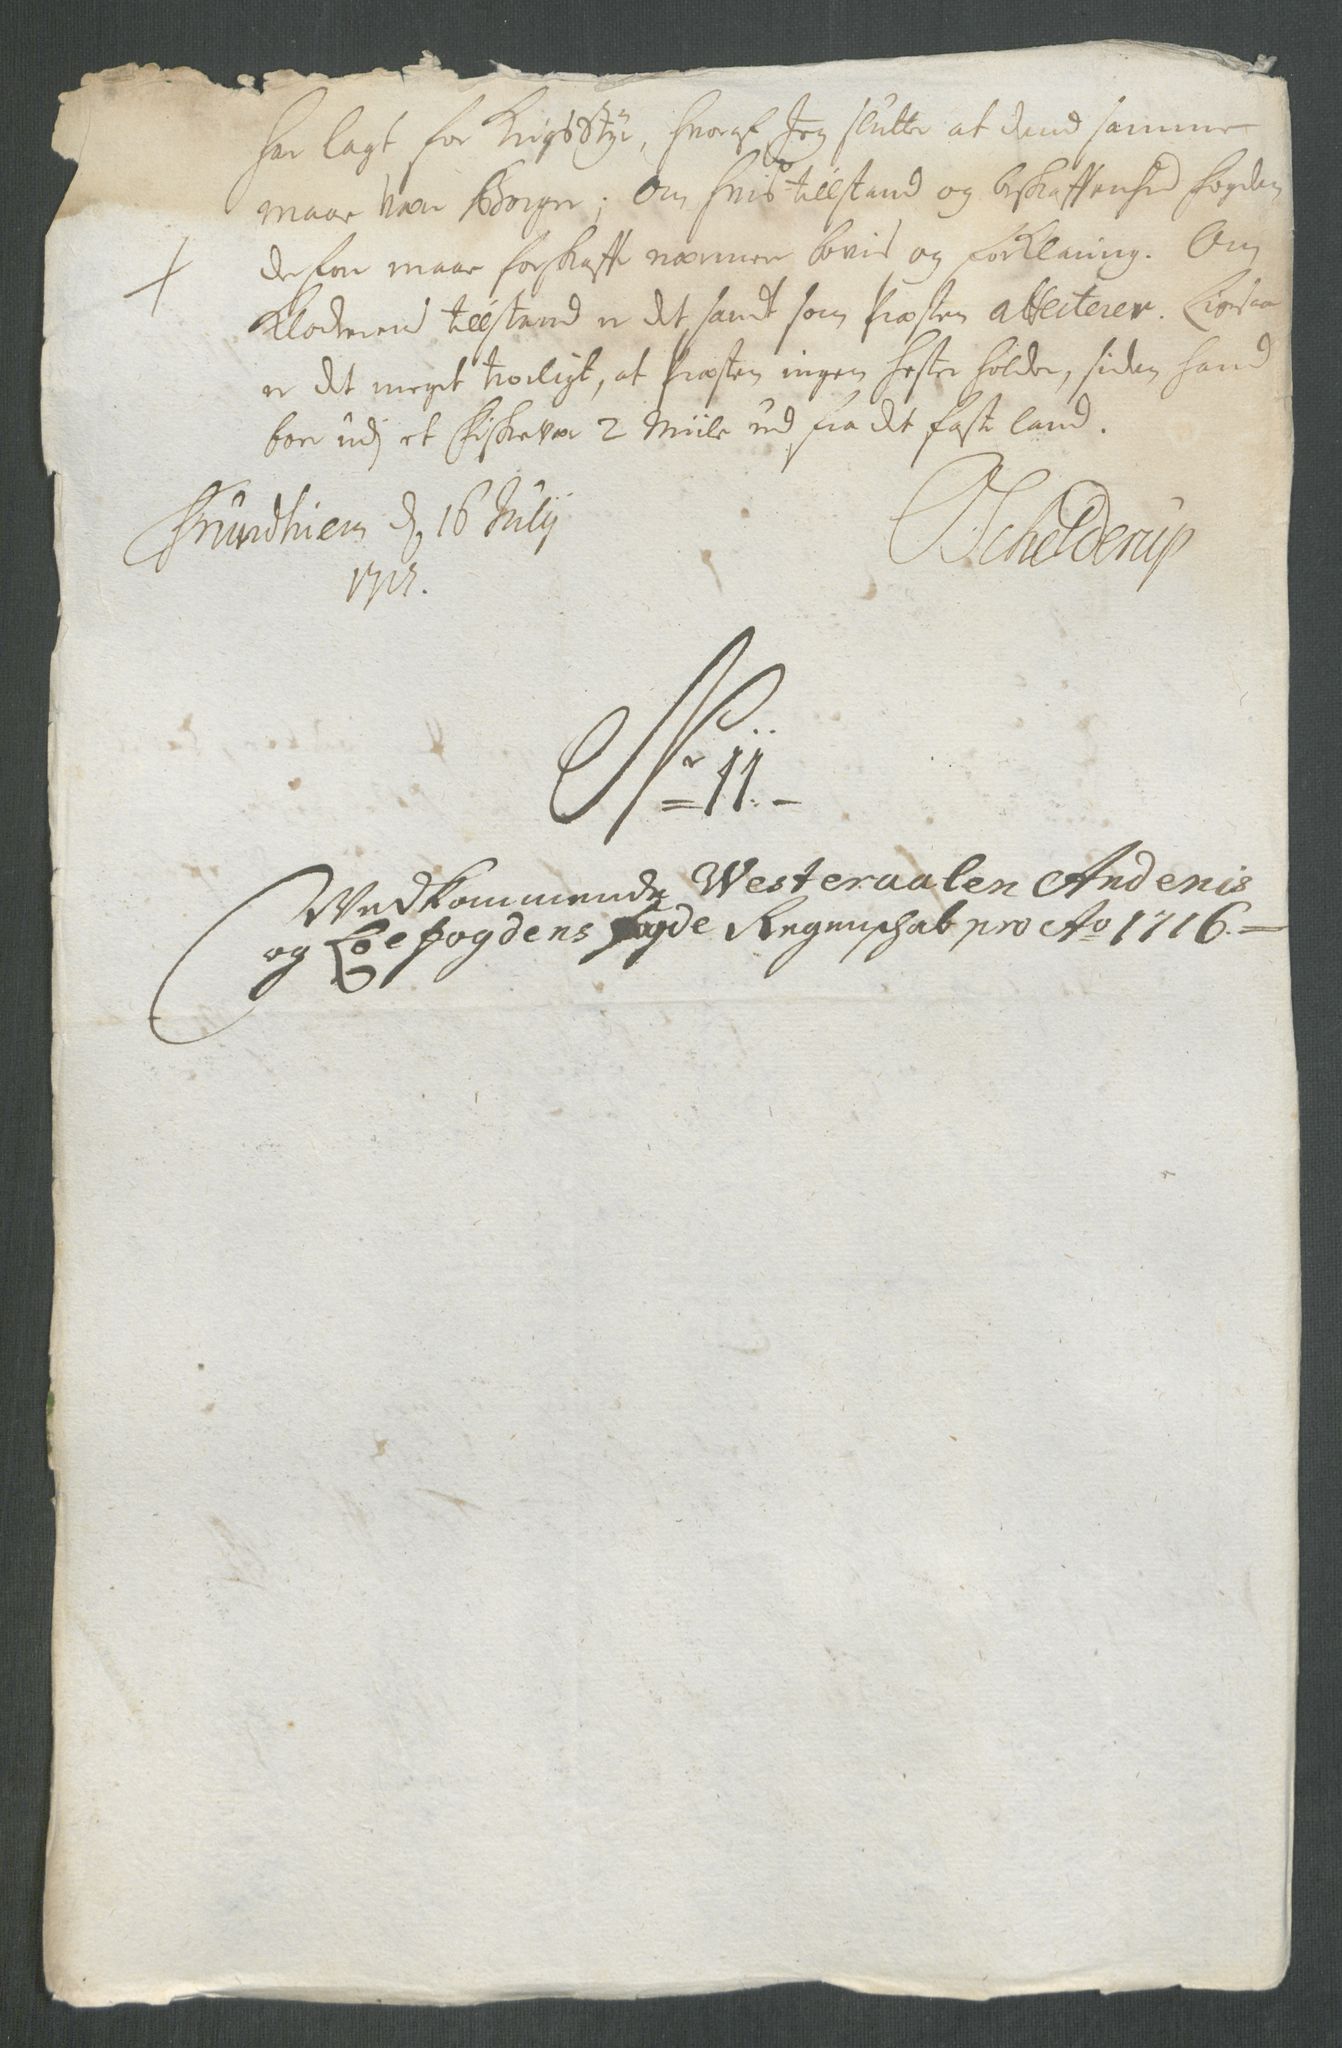 har lagt for Krigs Styr, hvoraf Jeg slutter at dend samme
maae være Borger; Om hvis tilstand og beskaffenhed fogden
derfore maae forskaffe nærmere bevis og forklaring. Om
Klockerens tilstand er det sandt som Præsten attesterer. Ligesaa
er det meget troeligt, at Præsten ingen hester holder, siden hand
boer udj et fiskevær 2 Miile ud fra det faste land.
Trundhiem d 16 Julij
Schelderup
No 11.
Vedkommende Westeraalen Andenis
og fogdens Regenschab pro Ao 1716.